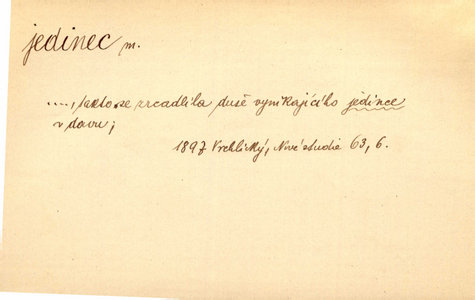 jedinec m.
...., takto se zrcadlila duše vynikajícího jedince
v davu;
1897 Vrchlický, Nové studie 63, 6.